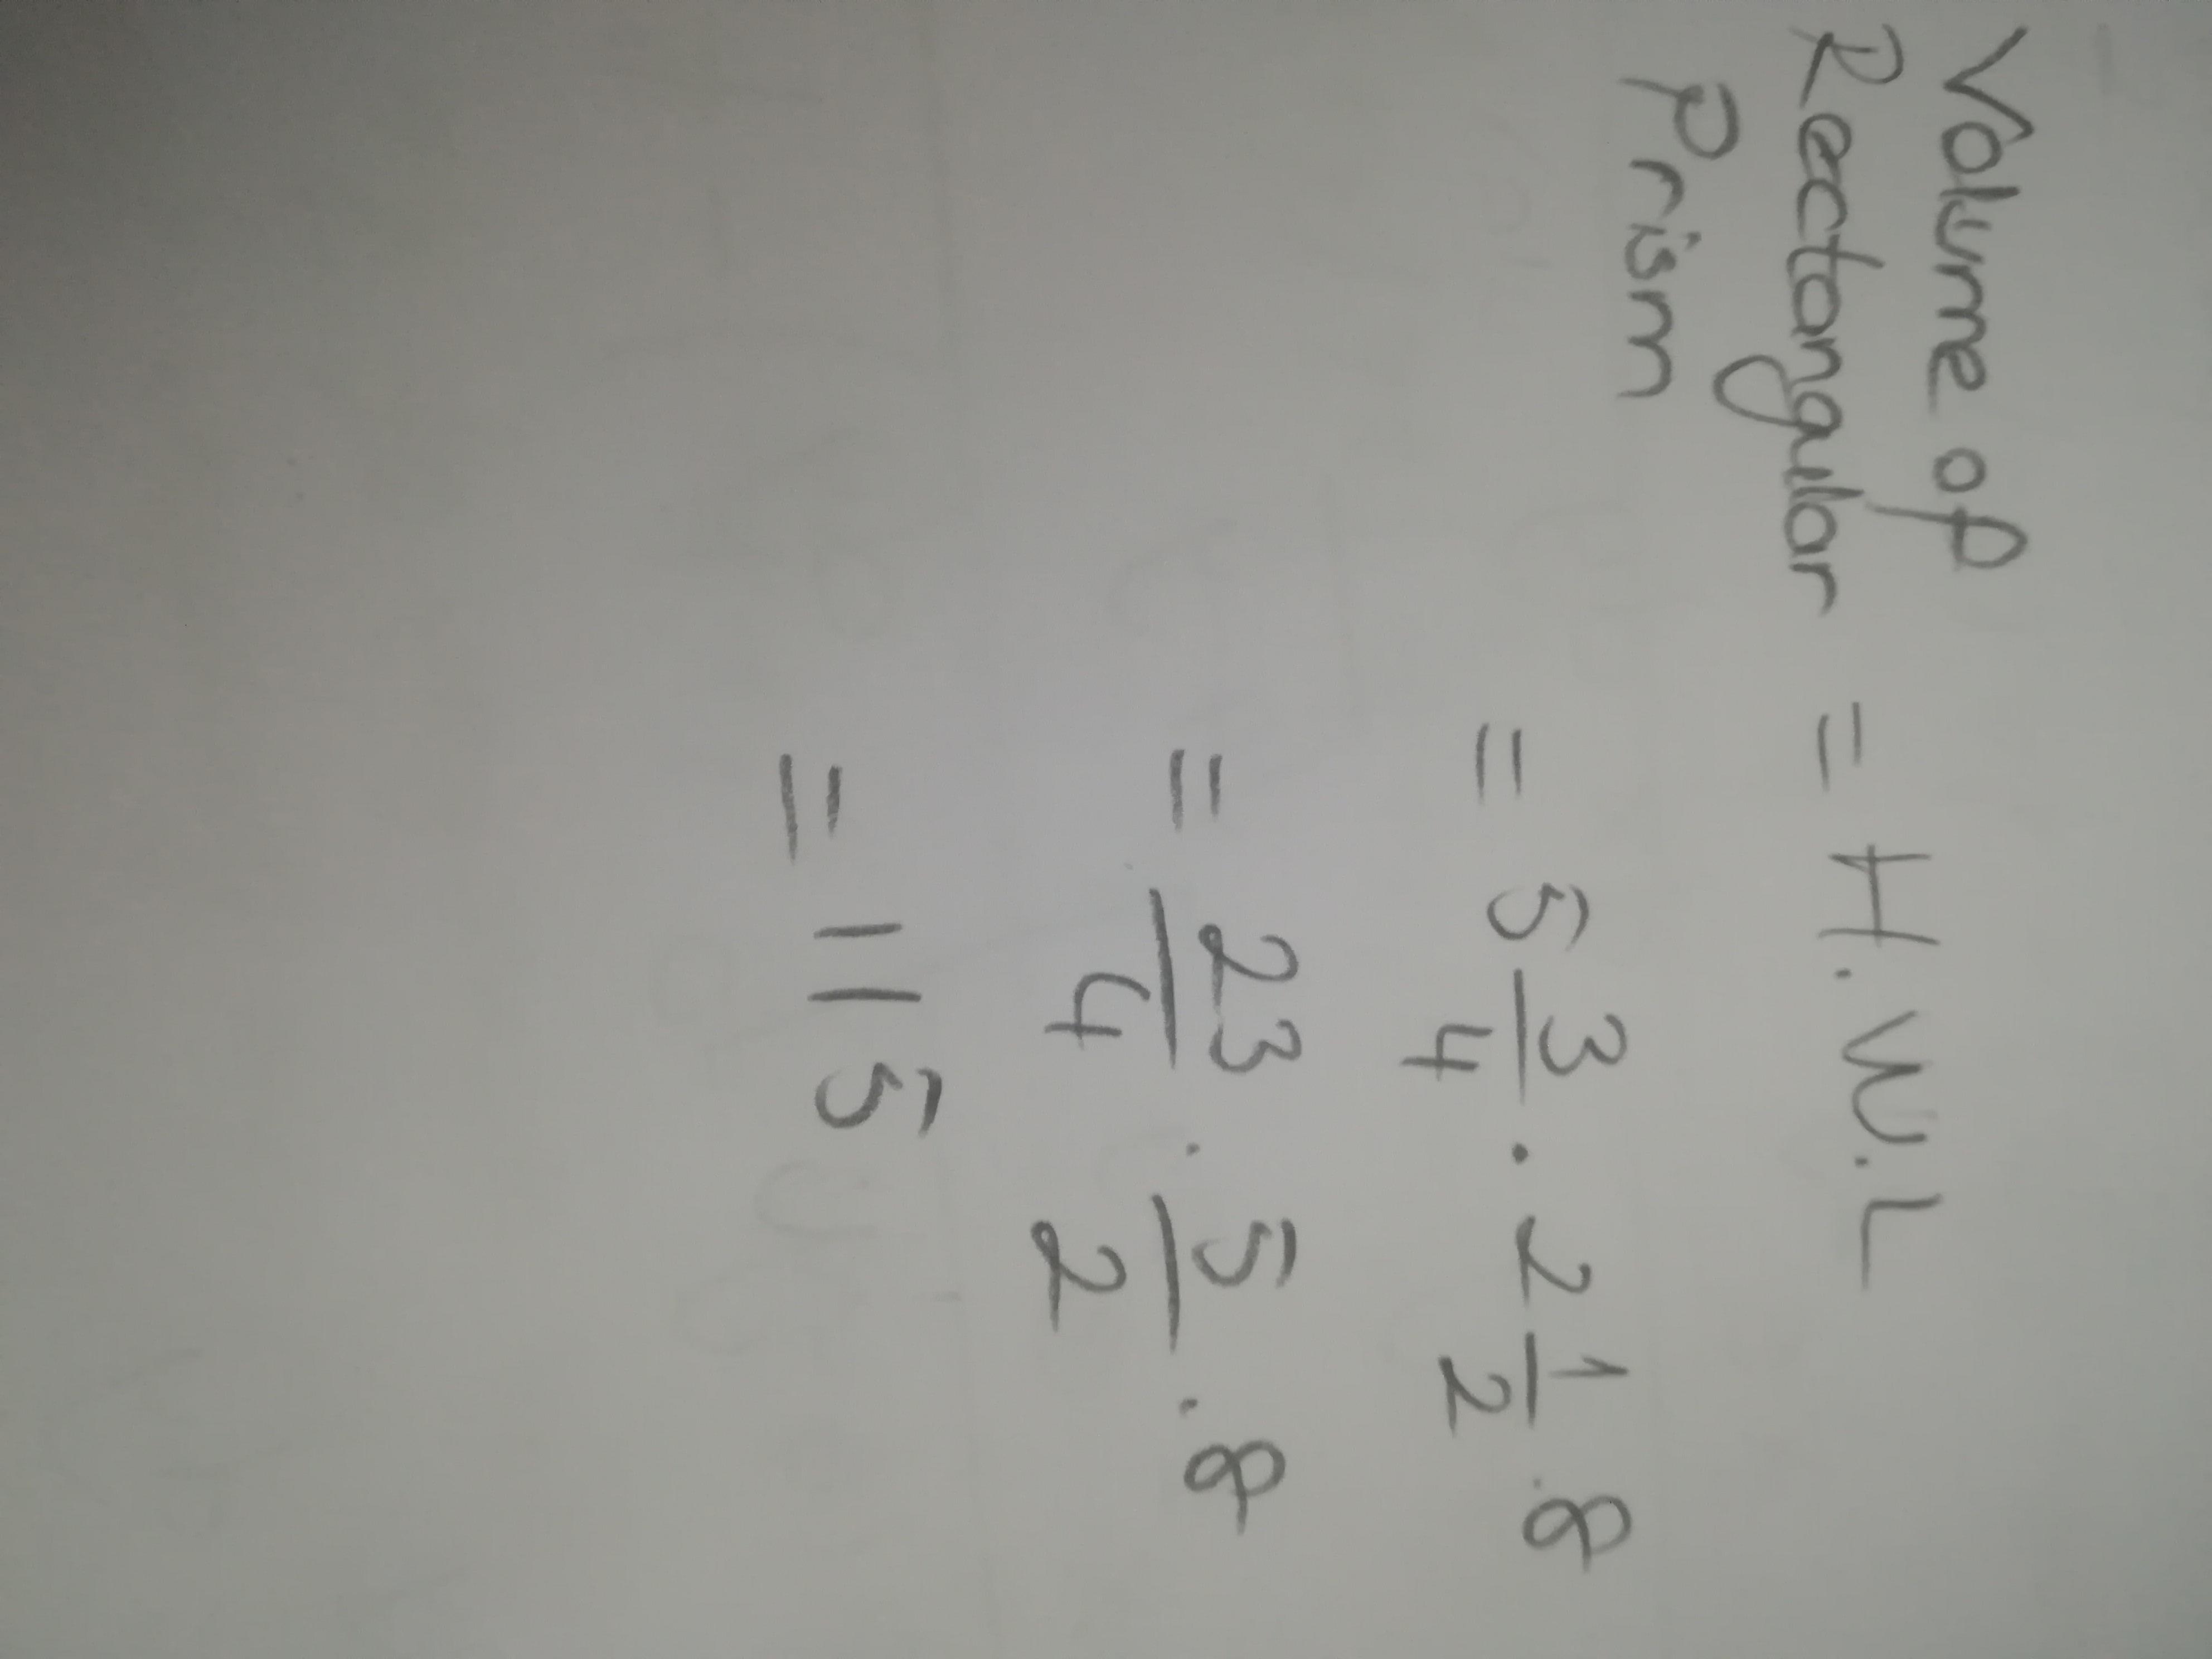 Volume of
Rectangular = H.W.L
Prism
= 5 3/4 . 2 1/2 .8
= 23/4 . 5/2 .8
= 115